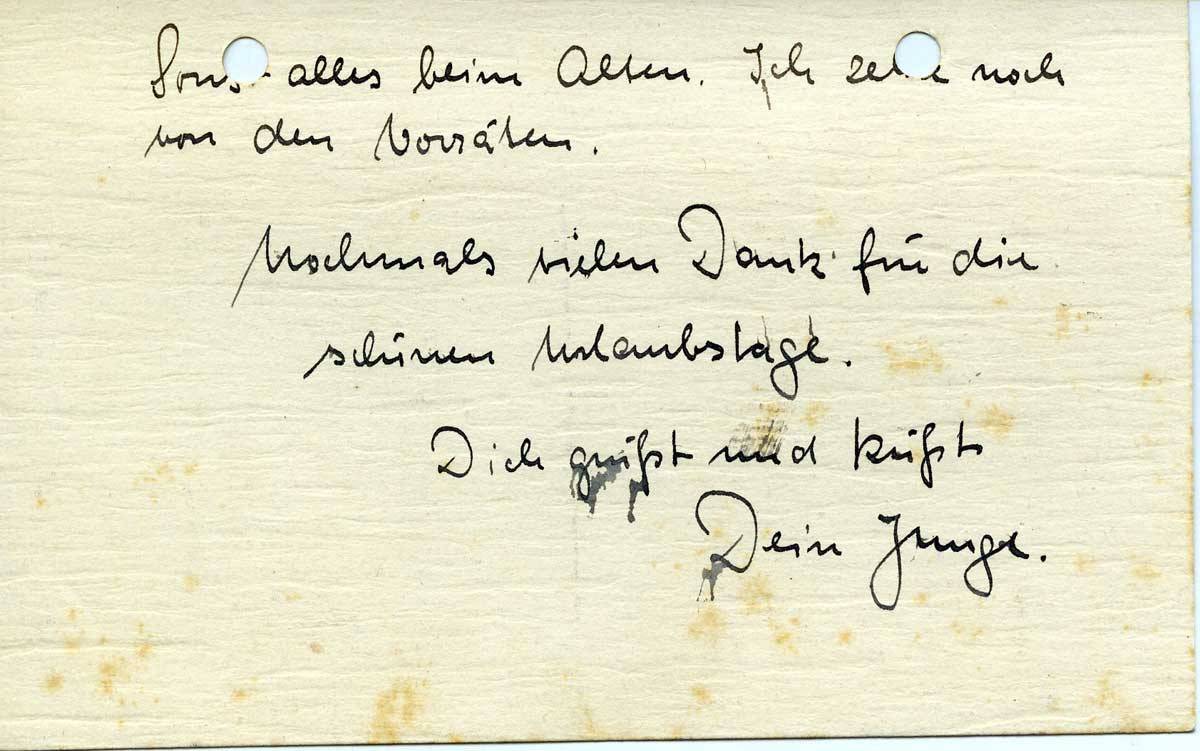 Sonst alles beim Alten. Ich zehre noch
von den Vorräten.
Nochmals vielen Dank für die
schönen Urlaubstage.
Dich grüßt und küßt
Dein Junge.